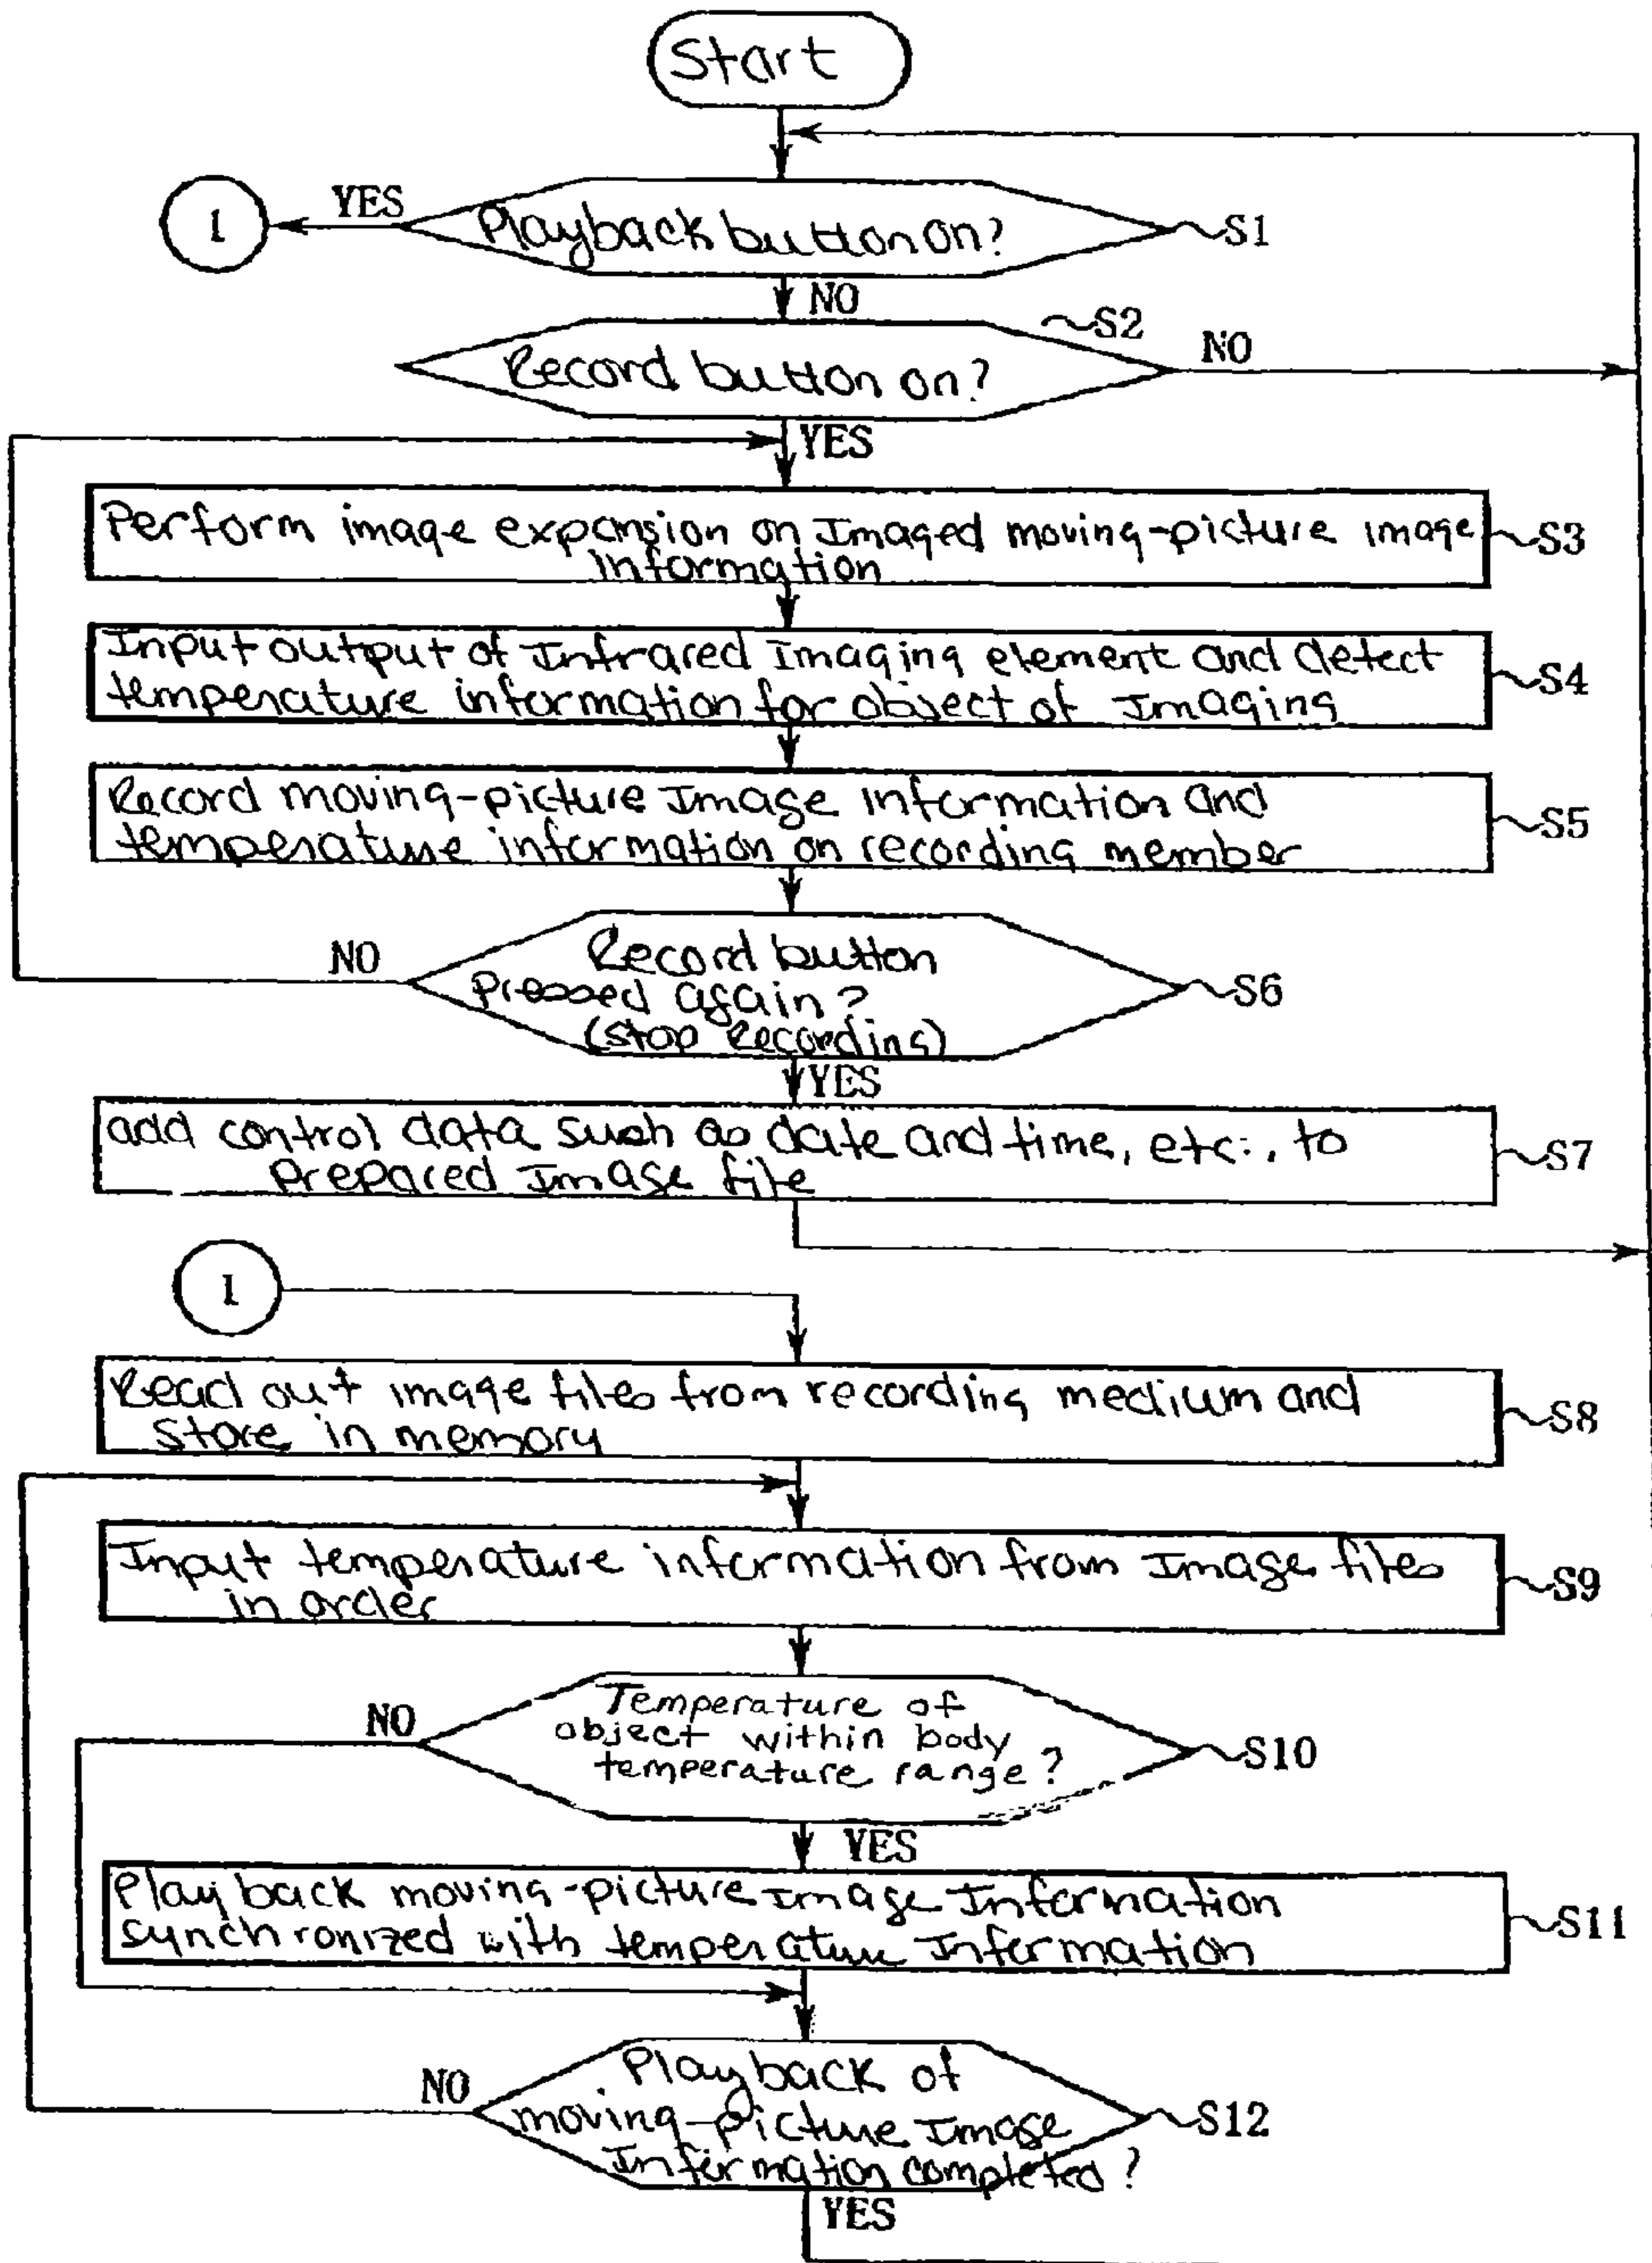 Start
YES
1
Playback button on?
S1
NO
S2
Record button on?
NO
YES
Perform image expansion on Imaged moving-picture image
information
S3
Input output of Infrared Imaging element and detect
temperature information for object of Imaging
S4
Record moving-picture Image information and
temperature information on recording member
S5
NO
Record button
Pressed again?
(Stop Recording)
S6
YES
add control data such as date and time, etc., to
Prepared Image file
S7
1
Read out image files from recording medium and
store in memory
S8
Input temperature information from Image files
in order
S9
NO
Temperature of
object within body
temperature range?
S10
YES
Playback moving-picture Image Information
synchronized with temperature Information
S11
NO
Playback of
moving-picture Image
Information completed?
S12
YES